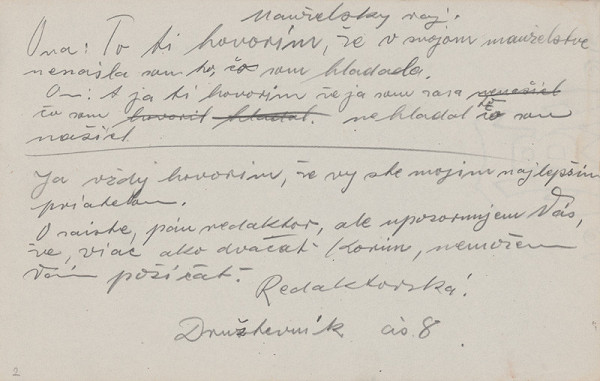 Manželský raj.
Ona: To ti hovorím, že v svojom manželstve
nenašla som to, čo som hladala.
On: A ja ti hovorím že ja som zasa
čo som hovoril hladal. nehladal to som
našiel.
Ja vždy hovorím, že vy ste mojim najlepším
priatelom.
O zaiste, pán redaktor, ale upozornujem Vás,
že, viac ako dvačať Korún, nemôžem
Vám požičať.
Redaktorská!
Družtevník čís 8
2